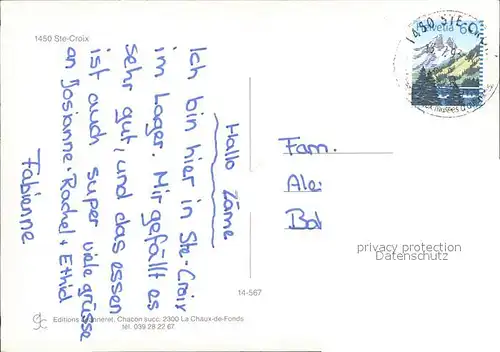 1450 Ste-Croix
Hallo zäme
Ich bin hier in Ste-Croix
im Lager. Mir gefällt es
sehr gut, und das essen
ist auch super viele grüsse
an Josianne, Rachel +
Fabienne
Fam.
Ale
Bal
Helvetia
1450 STE-CR
privacy protection
Datenschutz
14-567
Editions
Chacon succ. 2300 La Chaux-de-Fonds
tél. 039 28 22 67